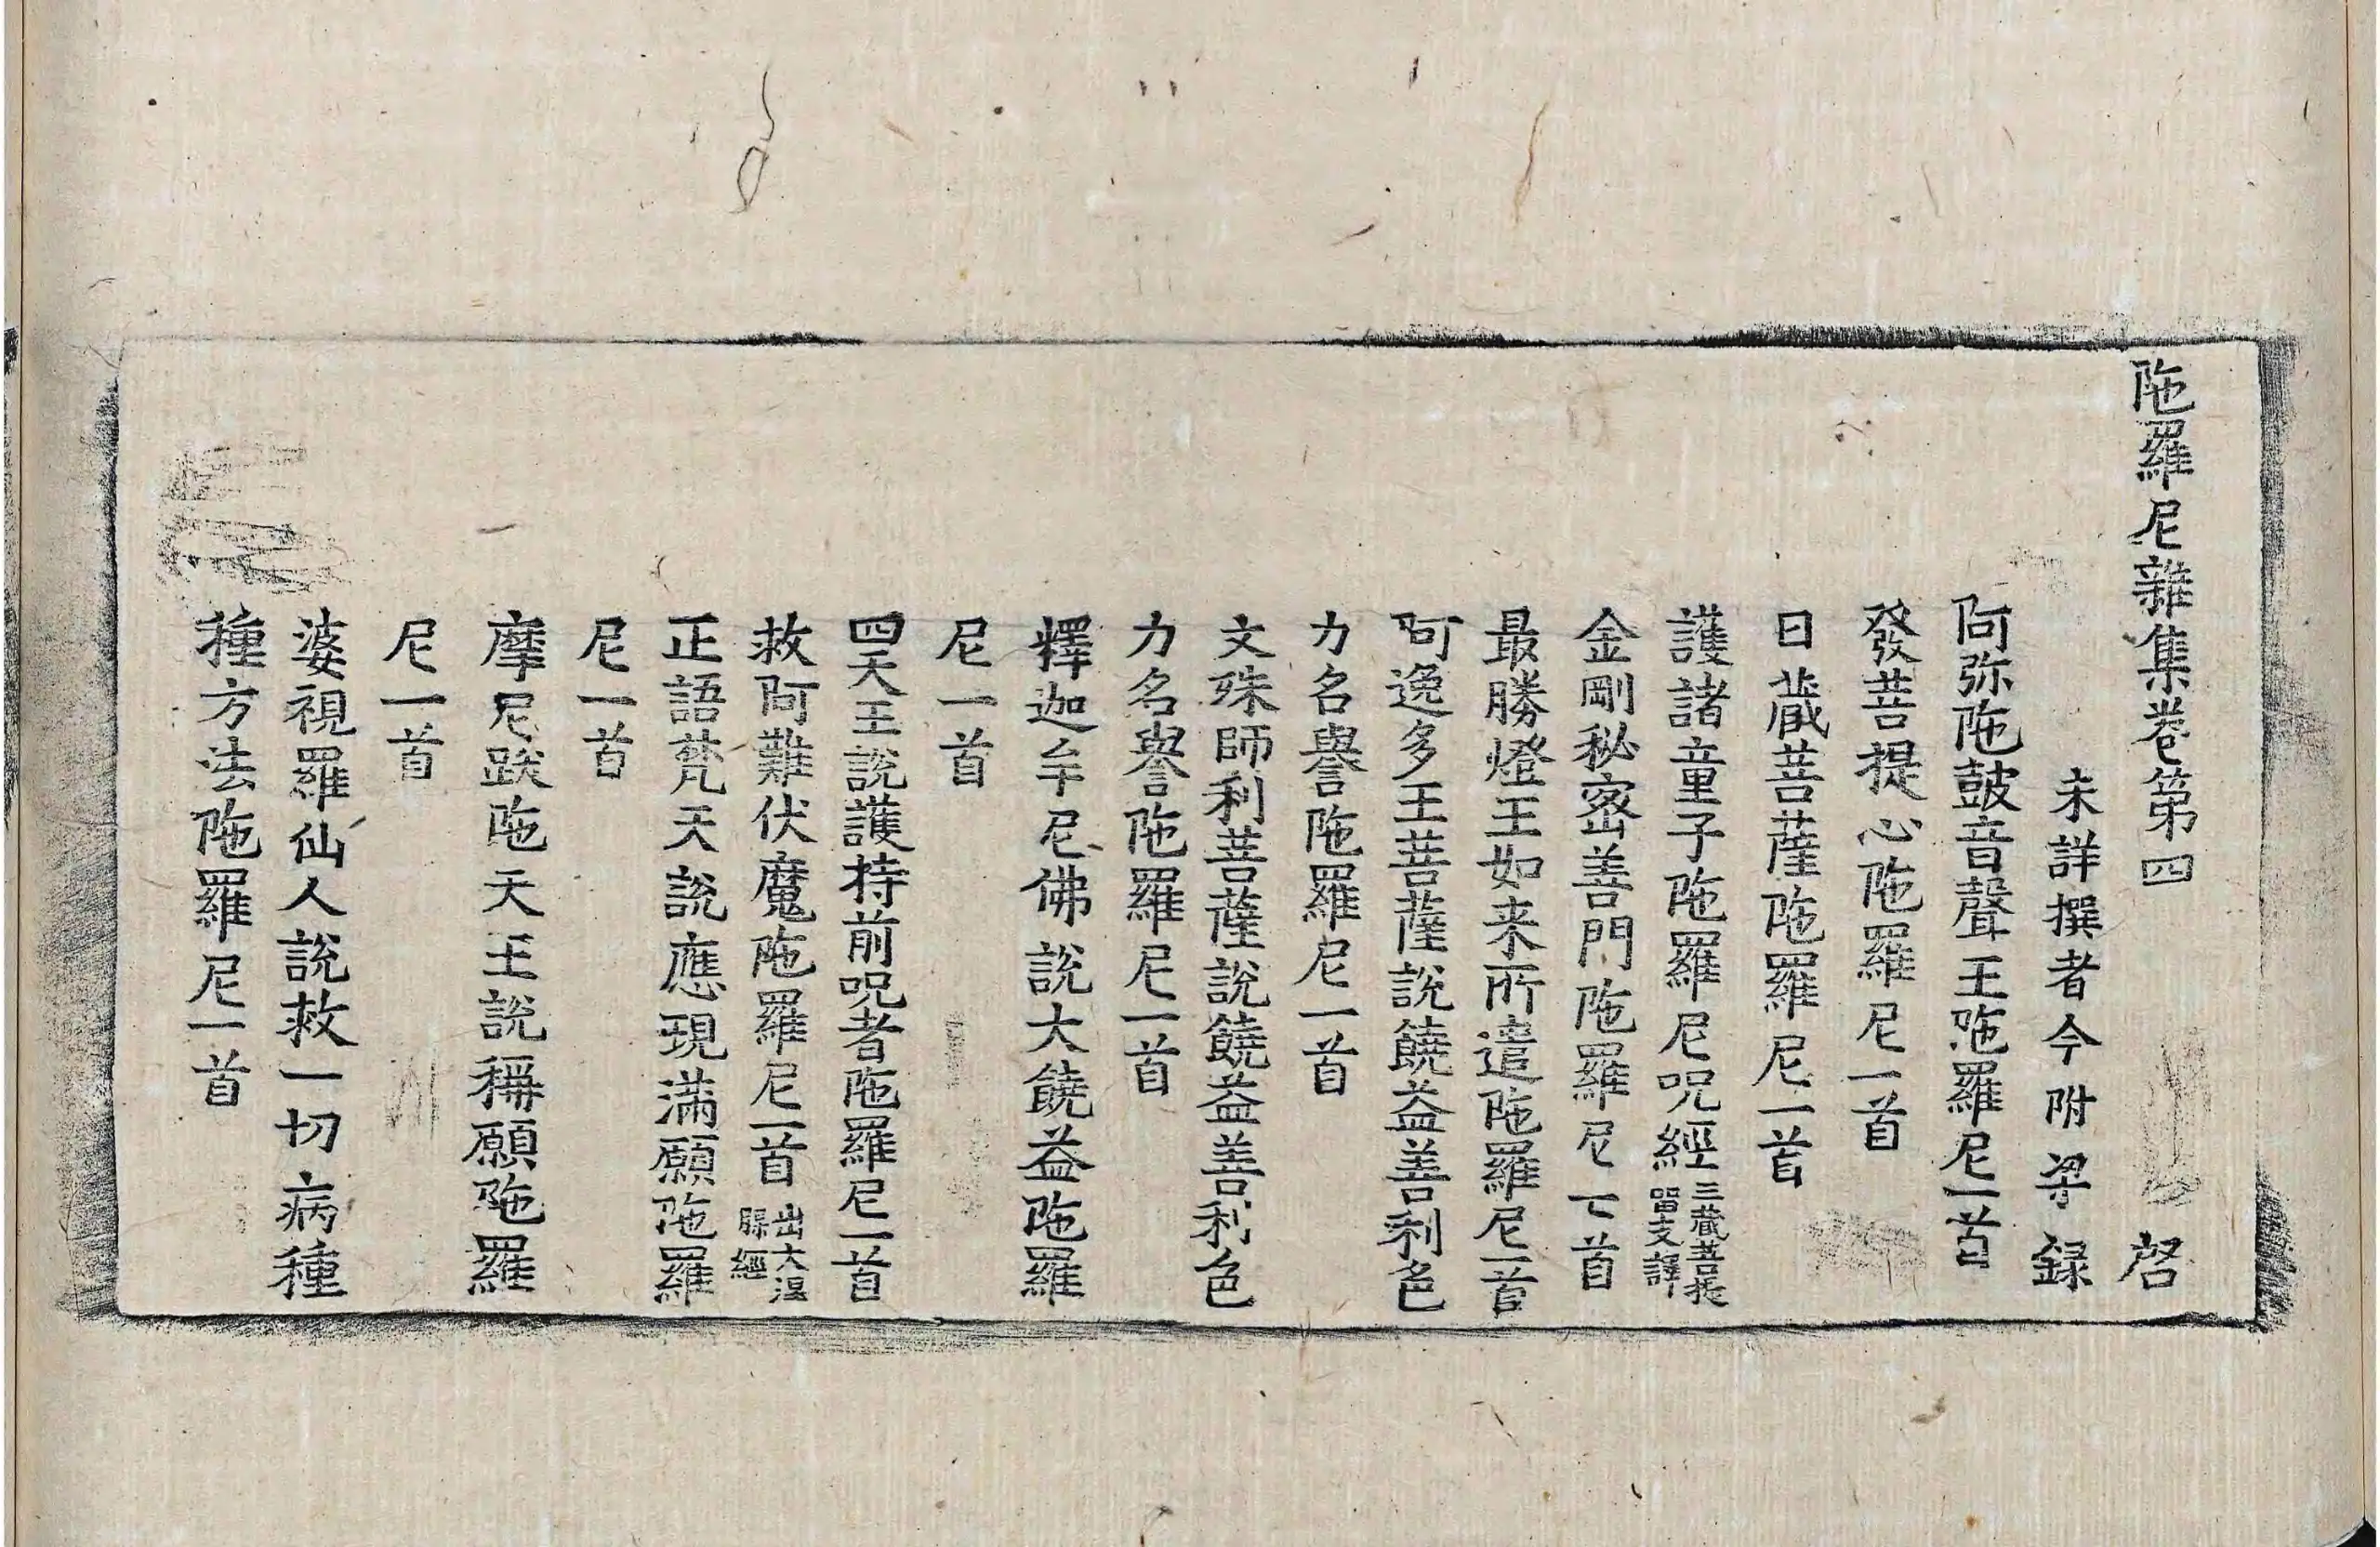 陁羅尼雜集卷第四　啓
未詳撰者今附梁録
阿弥陁鼓音聲王陁羅尼一首
發菩提心陁羅尼一首
日藏菩薩陁羅尼一首
護諸童子陁羅尼呪經三藏菩提留支譯
金剛秘密善門陁羅尼一首
最勝燈王如来所遣陁羅尼一首
阿逸多王菩薩說饒益善利色
力名譽陁羅尼一首
文殊師利菩薩說饒益善利色
力名譽陁羅尼一首
釋迦牟尼佛說大饒益陁羅
尼一首
四天王說護持前呪者陁羅尼一首
救阿難伏魔陁羅尼一首出大經
正語梵天說應現滿願陁羅
尼一首
摩尼跋陁天王說稱願陁羅
尼一首
婆視羅仙人說救一切病種
種方法陁羅尼一首